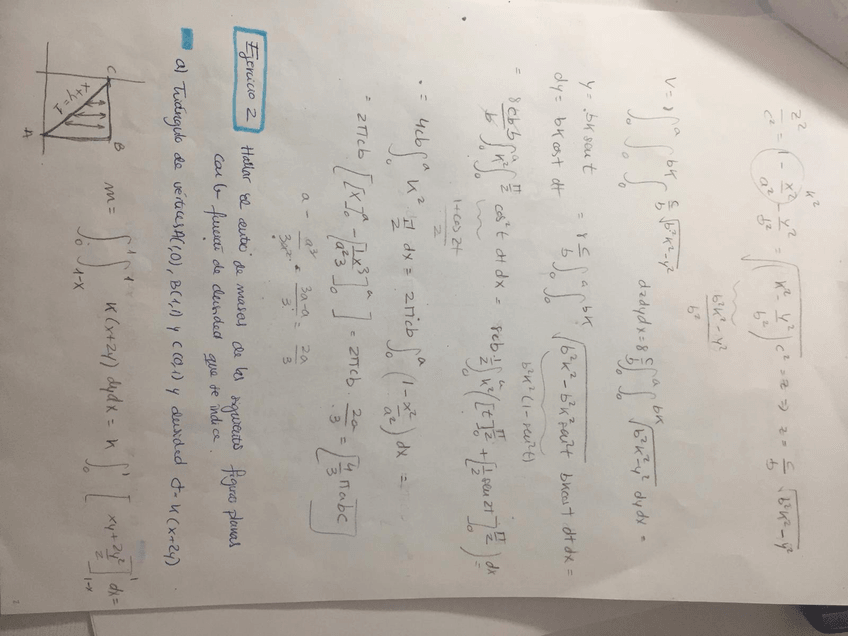 K²
z²/c² = 1 - x²/a² - y²/b² = √(K² - y²/b²) c² = z ⇒ z = c/b √(b²K² - y²)
(b²K² - y²)/b²
∫₀ᵃ ∫₀^bK ∫₀^(c/b √(b²K²-y²)) dzdydx = 8 c/b ∫₀ᵃ ∫₀^bK √(b²K²-y²) dydx =
y = bK sen t
dy = bK cos t dt
√(b²K² - b²K² sen²t) bK cos t dt dx =
b²K²(1-sen²t)
cos²t dt dx
(1+cos2t)/2
= 4cb ∫₀ᵃ K² π/2 dx = 2πcb ∫₀ᵃ (1 - x²/a²) dx =
= 2πcb · 2a/3 = 4/3 πabc
(3a-a)/3 = 2a/3
Ejercicio 2 Hallar el centro de masas de las siguientes figuras planas
con la función de densidad que se indica.
a) Triángulo de vértices A(1,0), B(1,1) y C(0,1) y densidad d = K(x+2y)
C
B
A
m = ∫₀¹ ∫_(1-x)^1 K(x+2y) dydx = K ∫₀¹ [xy + 2y²/2]_(1-x)^1 dx =